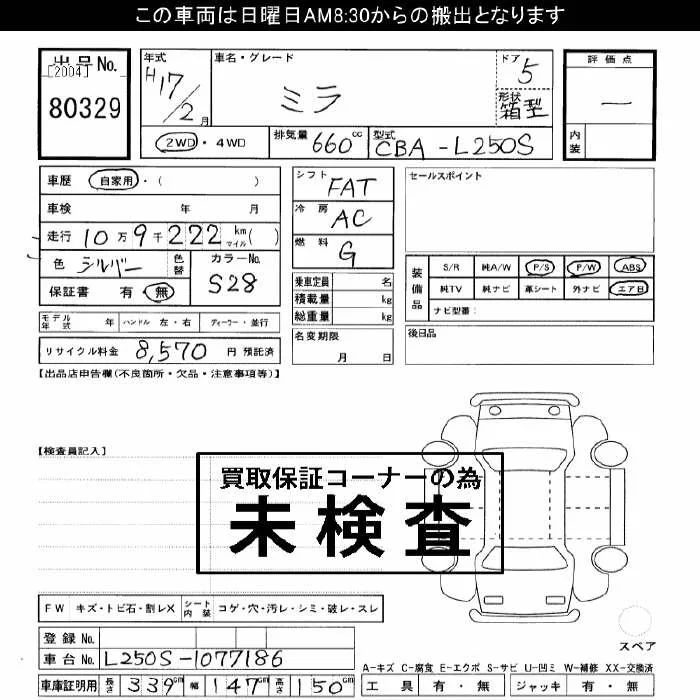 この車両は日曜日AM8:30からの搬出となります
出品No.
[2004]
80329
年式
H17/2月
車名・グレード
ミラ
ドア
5
形状
箱型
2WD・4WD
排気量 660cc
型式 CBA-L250S
評価点
一
内装
車歴 自家用・( )
車検 年 月
走行 10万9千222 km マイル( )
色 シルバー 色替
カラーNo. S28
保証書 有・無
モデル年式 年 ハンドル 左・右 ディーラー・並行
リサイクル料金 8,570 円 預託済
シフト FAT
冷房 AC
燃料 G
乗車定員 名
積載量 kg
総重量 kg
名変期限
月 日
セールスポイント
装備品
S/R 純A/W P/S P/W ABS
純TV 純ナビ 革シート 外ナビ エアB
ナビ型番:
後日品
【出品店申告欄(不良箇所・欠品・注意事項等)】
【検査員記入】
買取保証コーナーの為
未検査
FW キズ・トビ石・割レX シート内装 コゲ・穴・汚レ・シミ・破レ・スレ
登録No.
車台No. L250S-1077186
車庫証明用 長さ 339cm 幅 147cm 高さ 150cm
スペア
A-キズ C-腐食 E-エクボ S-サビ U-凹ミ W-補修 XX-交換済
工具 有・無 ジャッキ 有・無